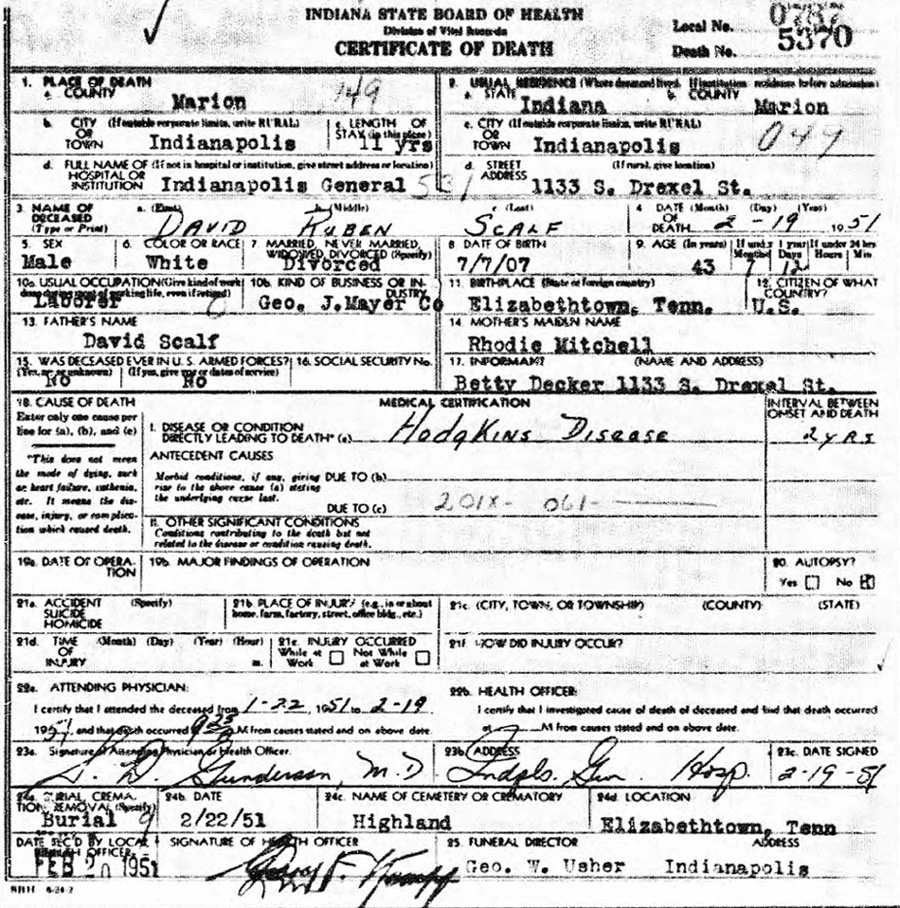 INDIANA STATE BOARD OF HEALTH
Division of Vital Records
CERTIFICATE OF DEATH
Local No. 0787
Death No. 5370
1. PLACE OF DEATH
a. COUNTY Marion 149
b. CITY (If outside corporate limits, write RURAL) OR TOWN Indianapolis
c. LENGTH OF STAY (in this place) 11 yrs
d. FULL NAME OF (If not in hospital or institution, give street address or location) HOSPITAL OR INSTITUTION Indianapolis General 531
2. USUAL RESIDENCE (Where deceased lived. If institution residence before admission)
a. STATE Indiana b. COUNTY Marion
c. CITY (If outside corporate limits, write RURAL) OR TOWN Indianapolis 049
d. STREET ADDRESS (If rural, give location) 1133 S. Drexel St.
3. NAME OF DECEASED (Type or Print) a. (First) DAVID b. (Middle) RUBEN c. (Last) SCALF
4. DATE OF DEATH (Month) (Day) (Year) 2-19 1951
5. SEX Male
6. COLOR OR RACE White
7. MARRIED, NEVER MARRIED, WIDOWED, DIVORCED (Specify) Divorced
8. DATE OF BIRTH 7/7/07
9. AGE (In years) 43 If under 1 year Months 7 Days 12 If under 24 hrs Hours Min
10a. USUAL OCCUPATION (Give kind of work done most of working life, even if retired) Laborer
10b. KIND OF BUSINESS OR INDUSTRY Geo. J. Mayer Co
11. BIRTHPLACE (State or foreign country) Elizabethtown, Tenn.
12. CITIZEN OF WHAT COUNTRY? U.S.
13. FATHER'S NAME David Scalf
14. MOTHER'S MAIDEN NAME Rhodie Mitchell
15. WAS DECEASED EVER IN U. S. ARMED FORCES? (Yes, no, or unknown) No (If yes, give war or dates of service) No
16. SOCIAL SECURITY No.
17. INFORMANT (NAME AND ADDRESS) Betty Decker 1133 S. Drexel St.
18. CAUSE OF DEATH
Enter only one cause per line for (a), (b), and (c)
"This does not mean the mode of dying, such as heart failure, asthenia, etc. It means the disease, injury, or complication which caused death.
MEDICAL CERTIFICATION
INTERVAL BETWEEN ONSET AND DEATH
I. DISEASE OR CONDITION DIRECTLY LEADING TO DEATH* (a) HODGKINS DISEASE 2 YRS
ANTECEDENT CAUSES
Morbid conditions, if any, giving rise to the above cause (a) stating the underlying cause last.
DUE TO (b)
DUE TO (c) 201X- 061-
II. OTHER SIGNIFICANT CONDITIONS
Conditions contributing to the death but not related to the disease or condition causing death.
19a. DATE OF OPERATION
19b. MAJOR FINDINGS OF OPERATION
20. AUTOPSY?
Yes No
21a. ACCIDENT SUICIDE HOMICIDE (Specify)
21b. PLACE OF INJURY (e.g., in or about home, farm, factory, street, office bldg., etc.)
21c. (CITY, TOWN, OR TOWNSHIP) (COUNTY) (STATE)
21d. TIME OF INJURY (Month) (Day) (Year) (Hour) m.
21e. INJURY OCCURRED While at Work Not While at Work
21f. HOW DID INJURY OCCUR?
22a. ATTENDING PHYSICIAN:
I certify that I attended the deceased from 1-22, 1951 to 2-19
1951, and that death occurred 9 25 M from causes stated and on above date.
22b. HEALTH OFFICER:
I certify that I investigated cause of death of deceased and find that death occurred
at M from causes stated and on above date.
23a. Signature of Attending Physician or Health Officer. Gunderson, M.D.
23b. ADDRESS Indpls. Gen. Hosp.
23c. DATE SIGNED 2-19-51
24a. BURIAL, CREMATION, REMOVAL (Specify) Burial 9
24b. DATE 2/22/51
24c. NAME OF CEMETERY OR CREMATORY Highland
24d. LOCATION Elizabethtown, Tenn
DATE REC'D BY LOCAL HEALTH OFFICER. FEB 20 1951
SIGNATURE OF HEALTH OFFICER
25. FUNERAL DIRECTOR ADDRESS
Geo. W. Usher Indianapolis